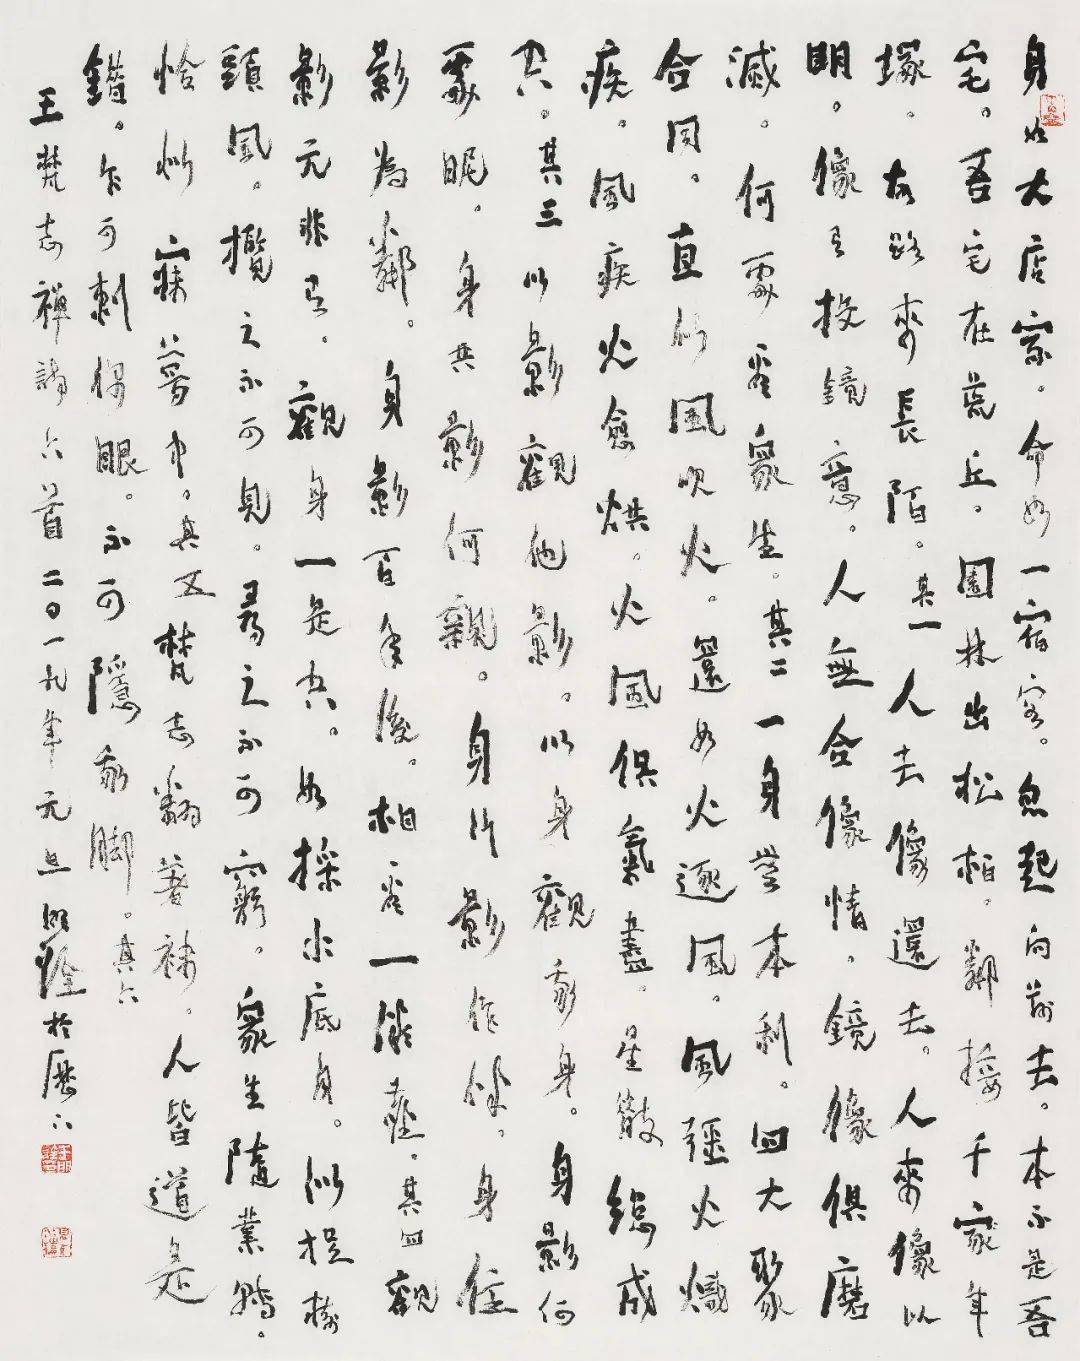 身如大店家。命如一宿客。忽起向前去。本不是吾
宅。吾宅在荒丘。園林出松柏。鄰接千家年
塚。故路來長陌。其一 人去像還去。人來像以
明。像有投鏡意。人無合像情。鏡像俱磨
滅。何處看眾生。其二 一身無本利。四大聚
合同。直似風吹火。還如火逐風。風強火熾
疾。風疾火愈烘。火風俱氣盡。星散總成
空。其三 以影觀他影。以身觀我身。身影何
處昵。身共影何親。身行影作伴。身住
影為鄰。身影百年後。相看一聚塵。其四 觀
影元非有。觀身一是空。如採水底月。似捉樹
頭風。攬之不可見。尋之不可窮。眾生隨業轉。
恰似寐夢中。其五 梵志翻著襪。人皆道是
錯。乍可刺你眼。不可隱我腳。其六
王梵志禪詩六首 二〇一九年元旦 明詮於歷下